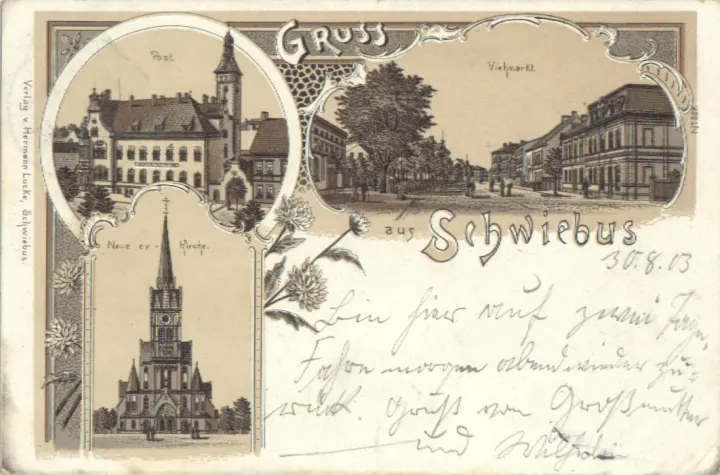 Post
GRUSS
Viehmarkt
aus Schwiebus
Neue ev. Kirche.
Verlag v. Hermann Lucke, Schwiebus.
30.8.03
Bin hier auf zwei Tage,
Fahre morgen abend wieder zu-
rück. Gruß von Großmutter
und